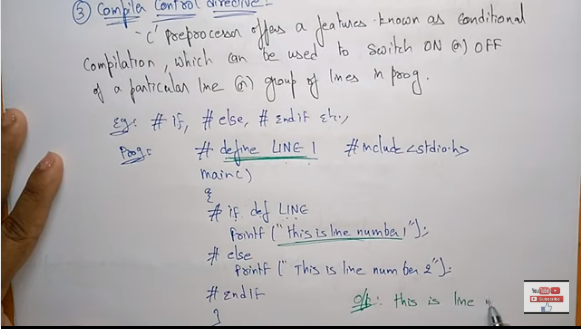 ③ Compiler Control directive:-
- 'C' preprocessor offers a features known as conditional
Compilation, which can be used to Switch ON (or) OFF
of a particular line (or) group of lines in prog.
Eg: # if, # else, # endif etc.,
Prog:
# define LINE 1 #include <stdio.h>
main()
{
# if def LINE
Printf ("This is line number 1");
# else
Printf ("This is line number 2");
# endif
}
o/p: this is line
YouTube
Subscribe